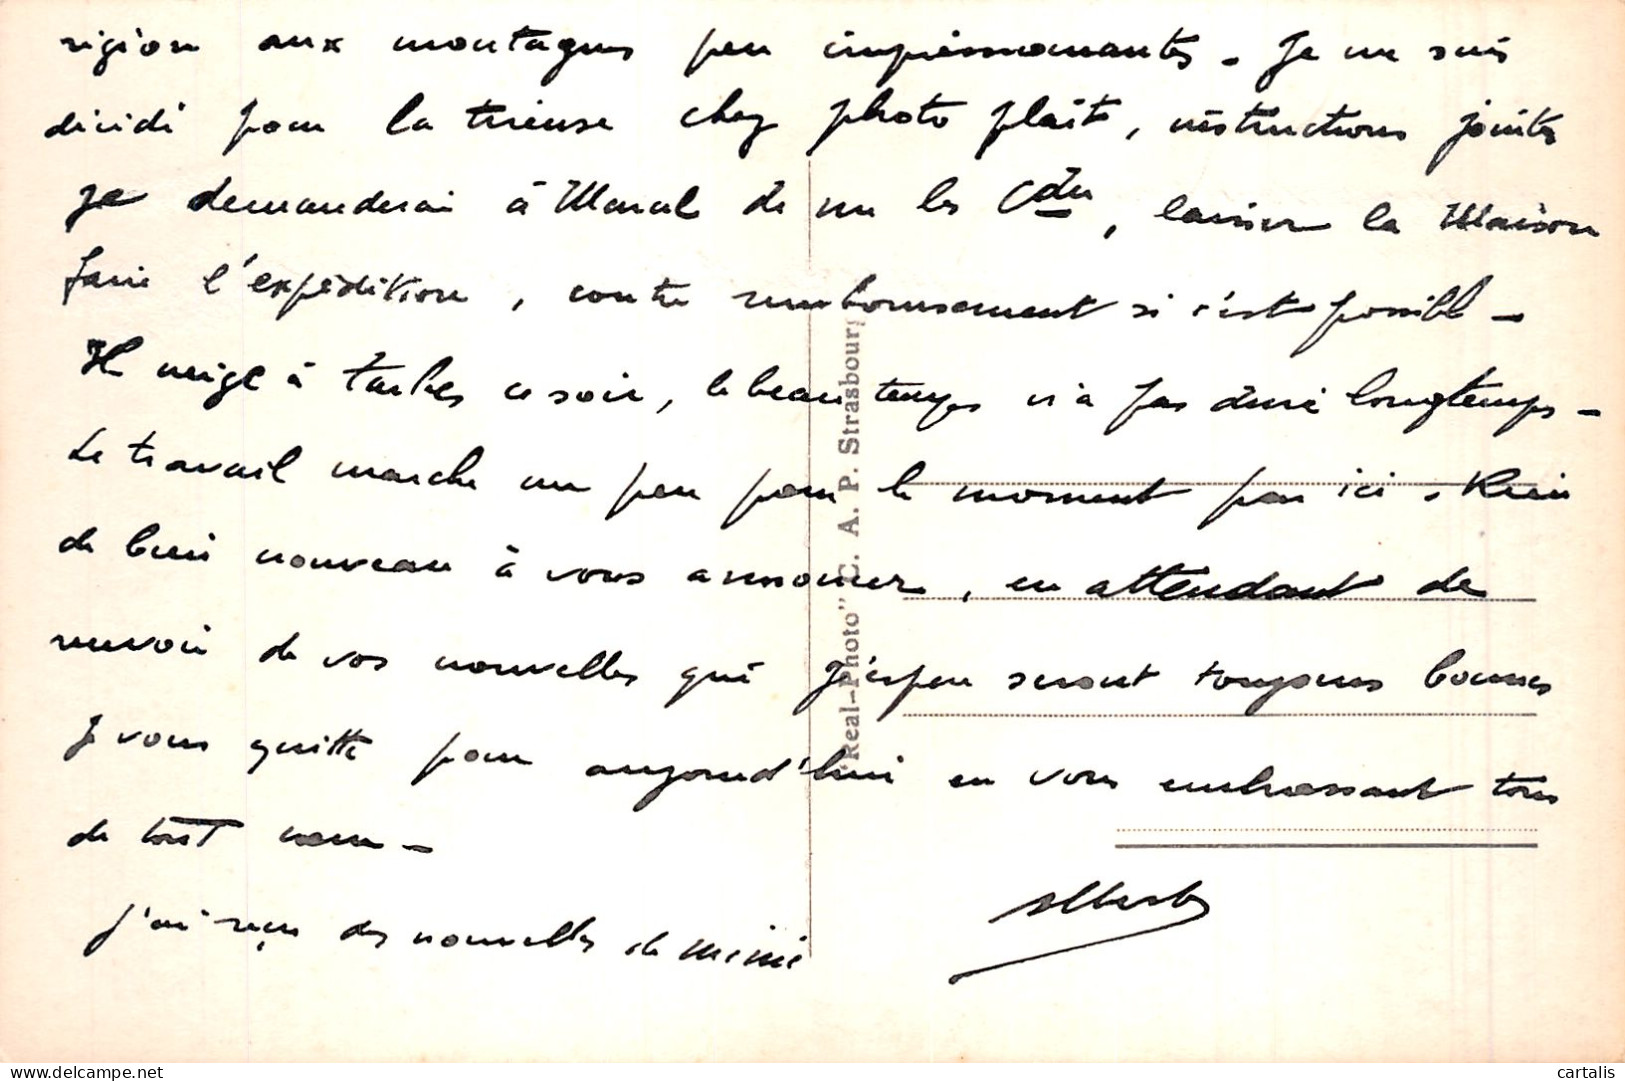 région aux montagnes peu impressionnantes. Je me suis
décidé pour la tireuse chez photo plait, instructions jointes
je demanderai à Marcel de me les Cder, laisser la Maison
faire l'expédition, contre remboursement si c'est possible -
Il neige à Tarbes ce soir, le beau temps n'a pas duré longtemps -
Le travail marche un peu pour le moment par ici. Rien
de bien nouveau à vous annoncer, en attendant de
revoir de vos nouvelles que j'espère seront toujours bonnes
Je vous quitte pour aujourd'hui en vous embrassant tous
de tout coeur -
Albert
j'ai reçu des nouvelles de Mimi
"Real-Photo" C. A. P. Strasbourg
https://www.delcampe.net
cartalis